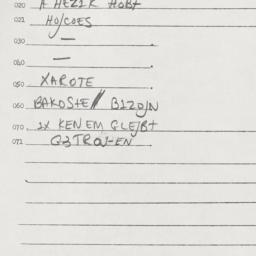 020 A HEZIK HOBT
021 HO/COES
030 —
040 —
050 XAROTE
060 BAKOSTE// BIZO/N
070 1X KEN EM GLE/BT
071